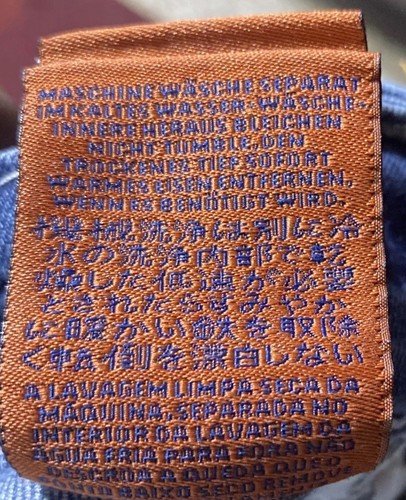 MASCHINE WÄSCHE SEPARAT
IM KALTES WASSER. WÄSCHE,
INNERE HERAUS BLEICHEN
NICHT TUMBLE, DEN
TROCKENEN TIEF SOFORT
WARMES EISEN ENTFERNEN,
WENN ES BENÖTIGT WIRD.
機械洗浄は別に冷
水の洗浄内部で乾
燥した低速が必要
とされたらすみやか
に暖かい鉄を取除
く転倒を漂白しない
A LAVAGEM LIMPA SECA DA
MÁQUINA, SEPARADA NO
INTERIOR DA LAVAGEM DA
ÁGUA FRIA PARA FORA NÃO
DESCRDA A QUEDA QUED
BAIXO SECO REMOVE